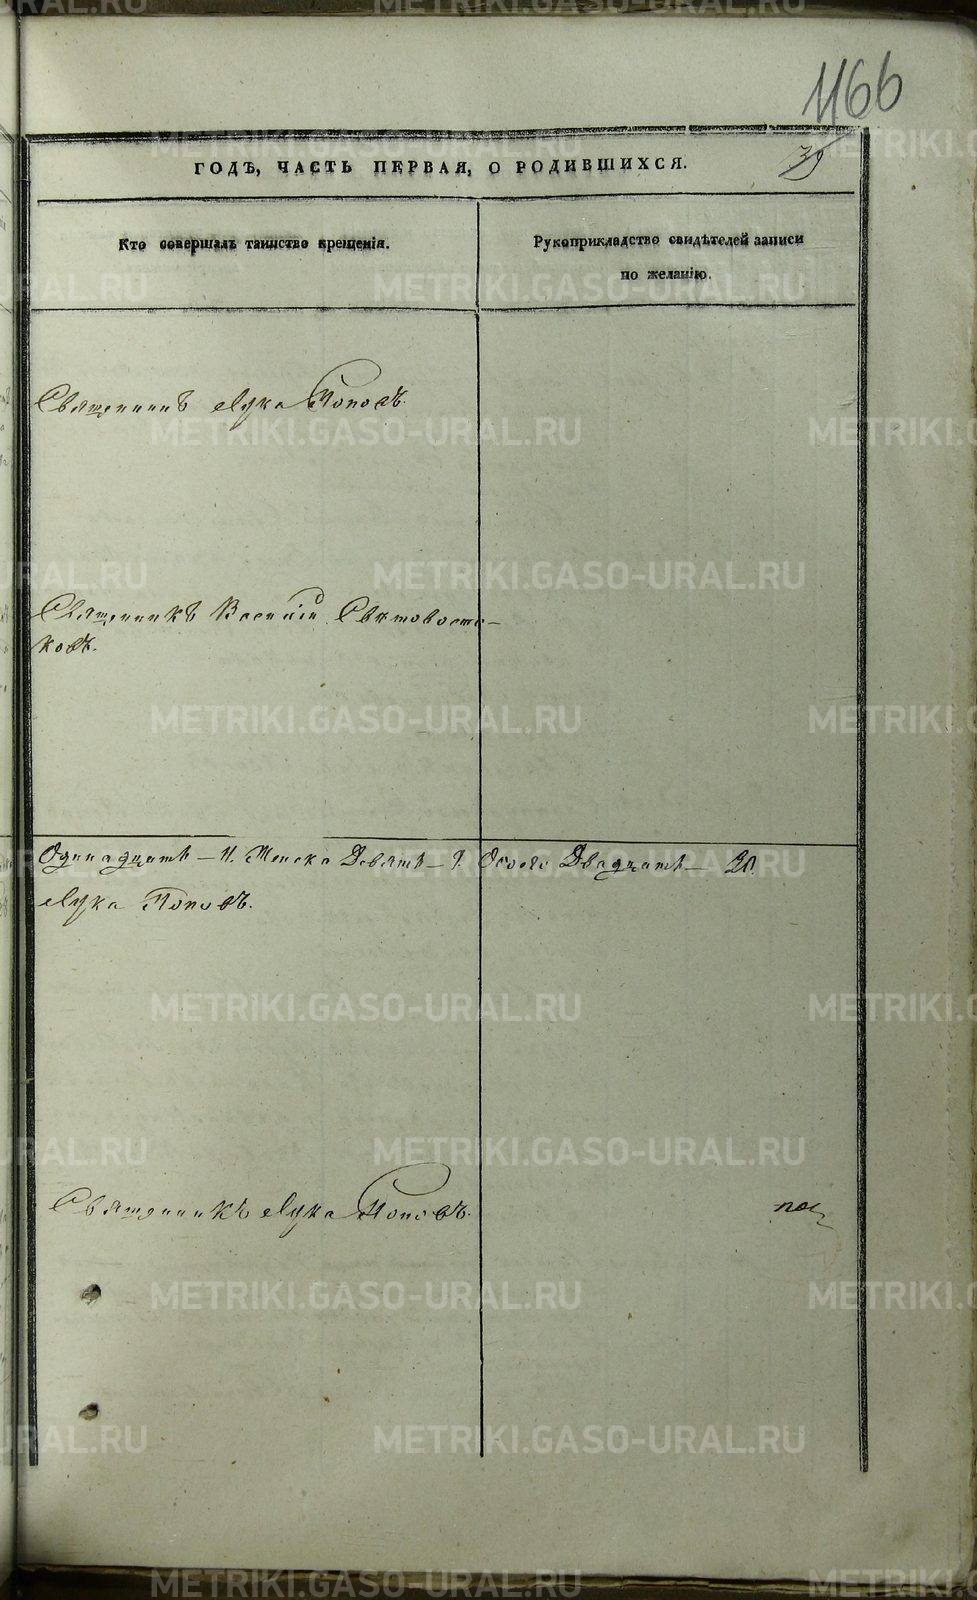 1166
39
ГОДЪ, ЧАСТЬ ПЕРВАЯ, О РОДИВШИХСЯ.
Кто совершалъ таинство крещенія.
Рукоприкладство свидѣтелей записи
по желанію.
Священникъ Лука Поповъ.
Священникъ Василій Свѣтовосто-
ковъ.
Одинадцать — 11. Женска Девять — 9. Обоего Двадцать — 20.
Лука Поповъ.
Священникъ Лука Поповъ.
METRIKI.GASO-URAL.RU